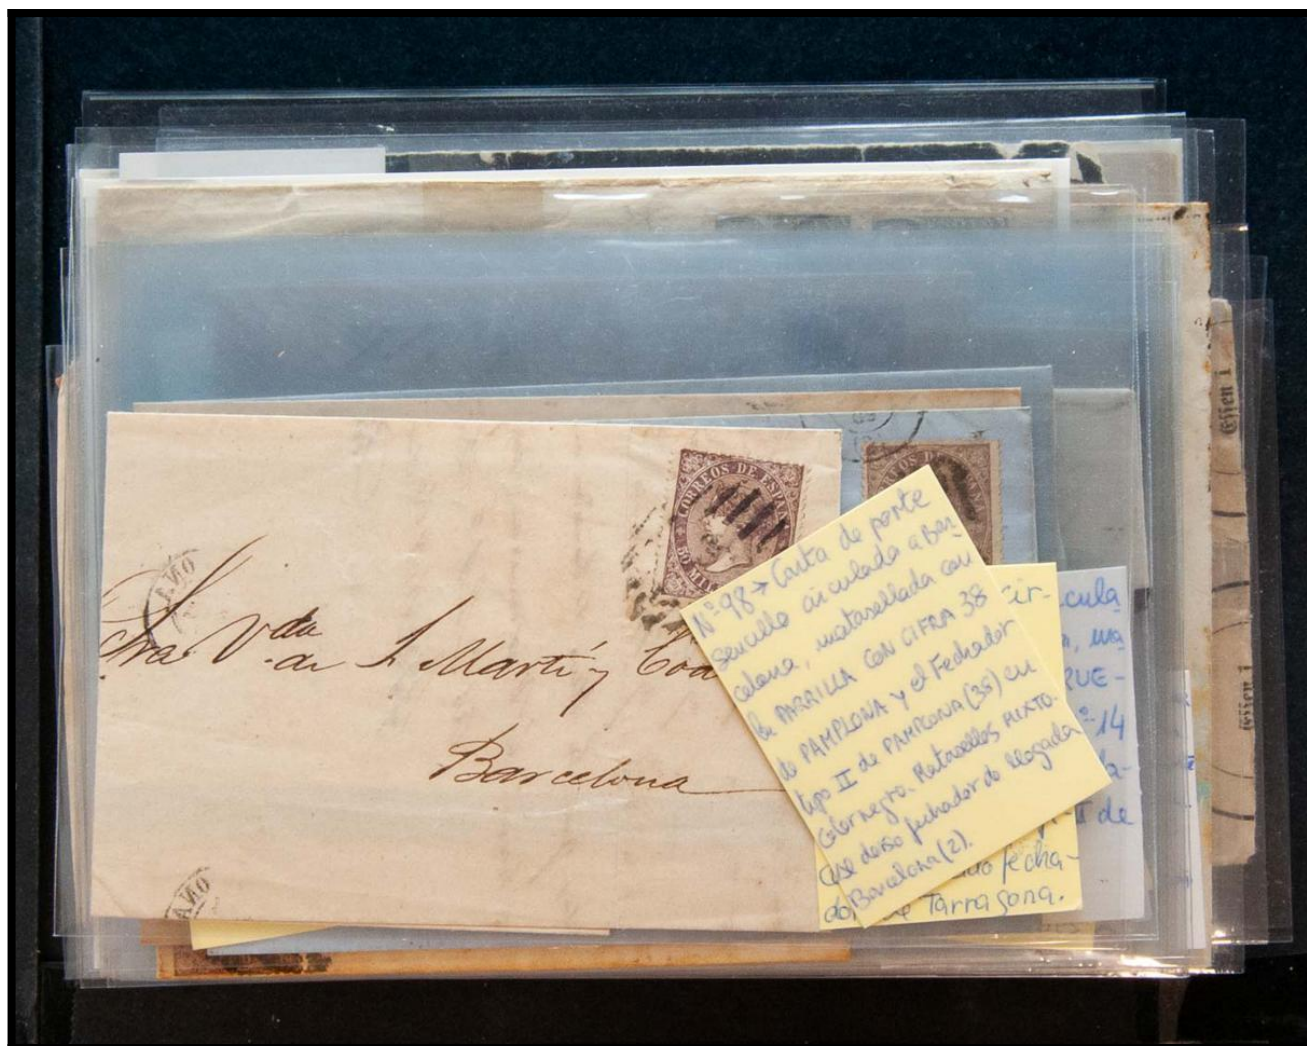 CORREOS DE ESPAÑA
50 MIL
Sra V.da de J. Martí y Cod
Barcelona
ANO
ANO
Nº 98 → Carta de porte
sencillo circulada a Bar-
celona, matasellada con
la PARRILLA CON CIFRA 38
de PAMPLONA y el Fechador
tipo II de PAMPLONA (38) en
color negro. Matasellos MIXTO.
Al dorso fechador de llegada
Barcelona (2).
cir-
do fecha-
do Tarragona.
cula
RUE-
nº 14
I de
Essen i
Essen i